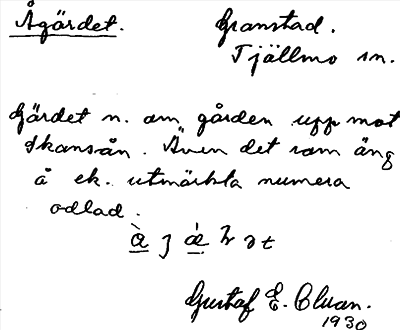 Ågärdet. Granstad.
Tjällmo sn.
Gärdet n. om gården upp mot
Skansån. Även det som äng
å ek. utmärkta numera
odlad.
Gustaf E. Cluan.
1930